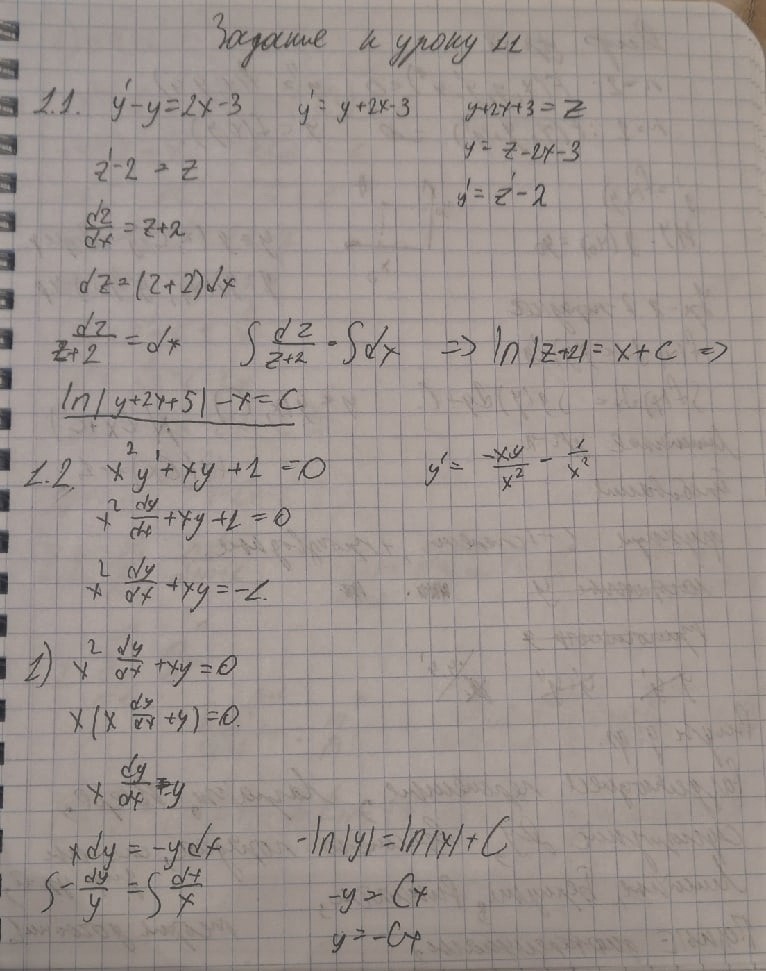 Задание к уроку 11
1.1. y' - y = 2x - 3 y' = y + 2x - 3 y + 2x + 3 = z
y = z - 2x - 3
z' - 2 = z y' = z' - 2
dz/dx = z + 2
dz = (z + 2)dx
dz/(z+2) = dx ∫ dz/(z+2) = ∫ dx => ln|z+2| = x + C =>
ln|y + 2x + 5| - x = C
1.2. x² y' + xy + 1 = 0 y' = -xy/x² - 1/x²
x² dy/dx + xy + 1 = 0
x² dy/dx + xy = -1.
1) x² dy/dx + xy = 0
x(x dy/dx + y) = 0.
x dy/dx = -y
x dy = -y dx -ln|y| = ln|x| + C
∫ - dy/y = ∫ dx/x -y = Cx
y = -Cx